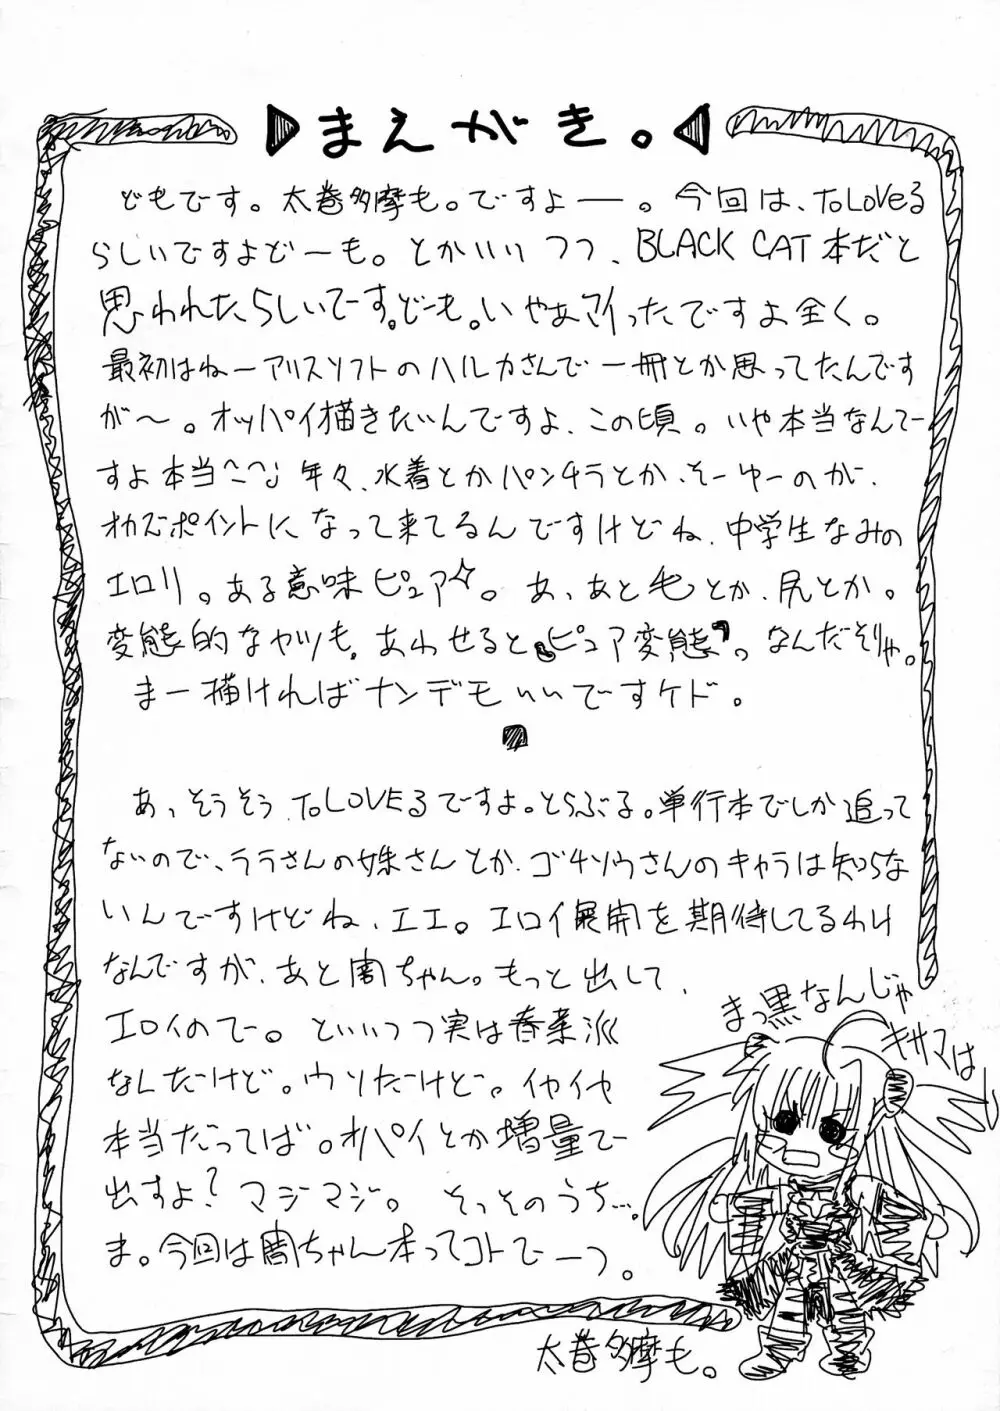 まえがき。
どもです。太巻多摩も。ですよー。今回は、ToLOVEる
らしいですよどーも。とかいいつつ、BLACK CAT本だと
思われたらしいでーす。どーも。いやぁマイったですよ全く。
最初はねーアリスソフトのハルカさんで一冊とか思ってたんです
が〜。オッパイ描きたいんですよ、この頃。いや本当なんでー
すよ本当^^;年々、水着とかパンチラとか、そーゆーのが、
オカズポイントになって来てるんですけどね、中学生なみの
エロリ。ある意味ピュア☆。あ、あと毛とか、尻とか。
変態的なヤツも。あわせると〝ピュア変態〟。なんだそりゃ。
まー描ければナンデモいいですケド。
あ、そうそう、ToLOVEるですよ。とらぶる。単行本でしか追って
ないので、ララさんの妹さんとか、ゴチソウさんのキャラは知らな
いんですけどね、エエ。エロイ展開を期待してるわけ
なんですが、あと闇ちゃん。もっと出して、
エロイのでー。といいつつ実は春菜派
なんだけど。ウソだけど。イヤイヤ
本当だってば。オパイとか増量でー
出すよ?マジマジ。そっそのうち…。
ま。今回は闇ちゃん本ってコトでーっ。
まっ黒なんじゃ
キサマはぁ
太巻多摩も。